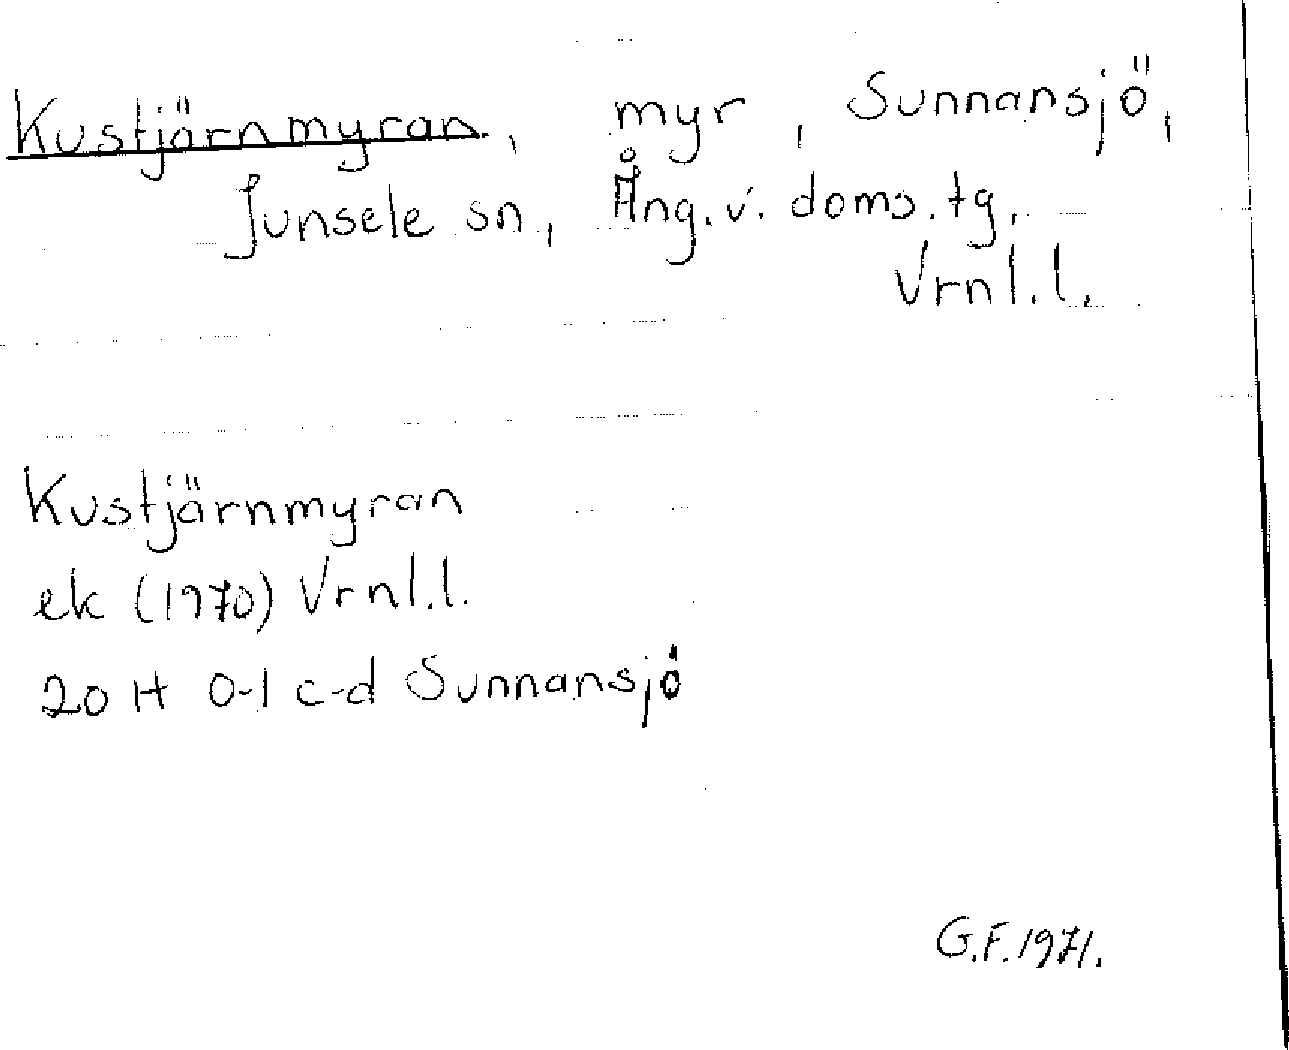 Kustjärnmyran, myr, Sunnansjö,
Junsele sn, Ång. v. doms. tg,
Vrnl. l.
Kustjärnmyran
ek (1970) Vrnl. l.
20 H 0-1 c-d Sunnansjö
G.F. 1971.